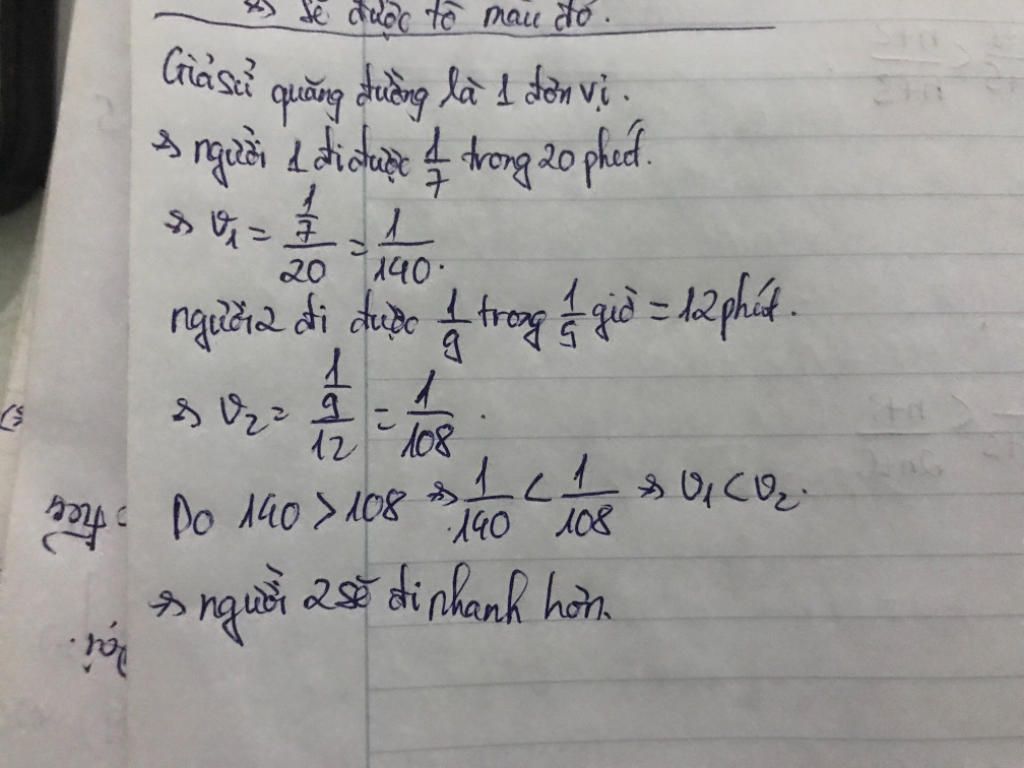 => sẽ được tô màu đỏ.
Giả sử quãng đường là 1 đơn vị.
=> người 1 đi được 1/7 trong 20 phút.
=> v₁ = (1/7)/20 = 1/140.
người 2 đi được 1/9 trong 1/5 giờ = 12 phút.
=> v₂ = (1/9)/12 = 1/108.
Do 140 > 108 => 1/140 < 1/108 => v₁ < v₂.
=> người 2 sẽ đi nhanh hơn.